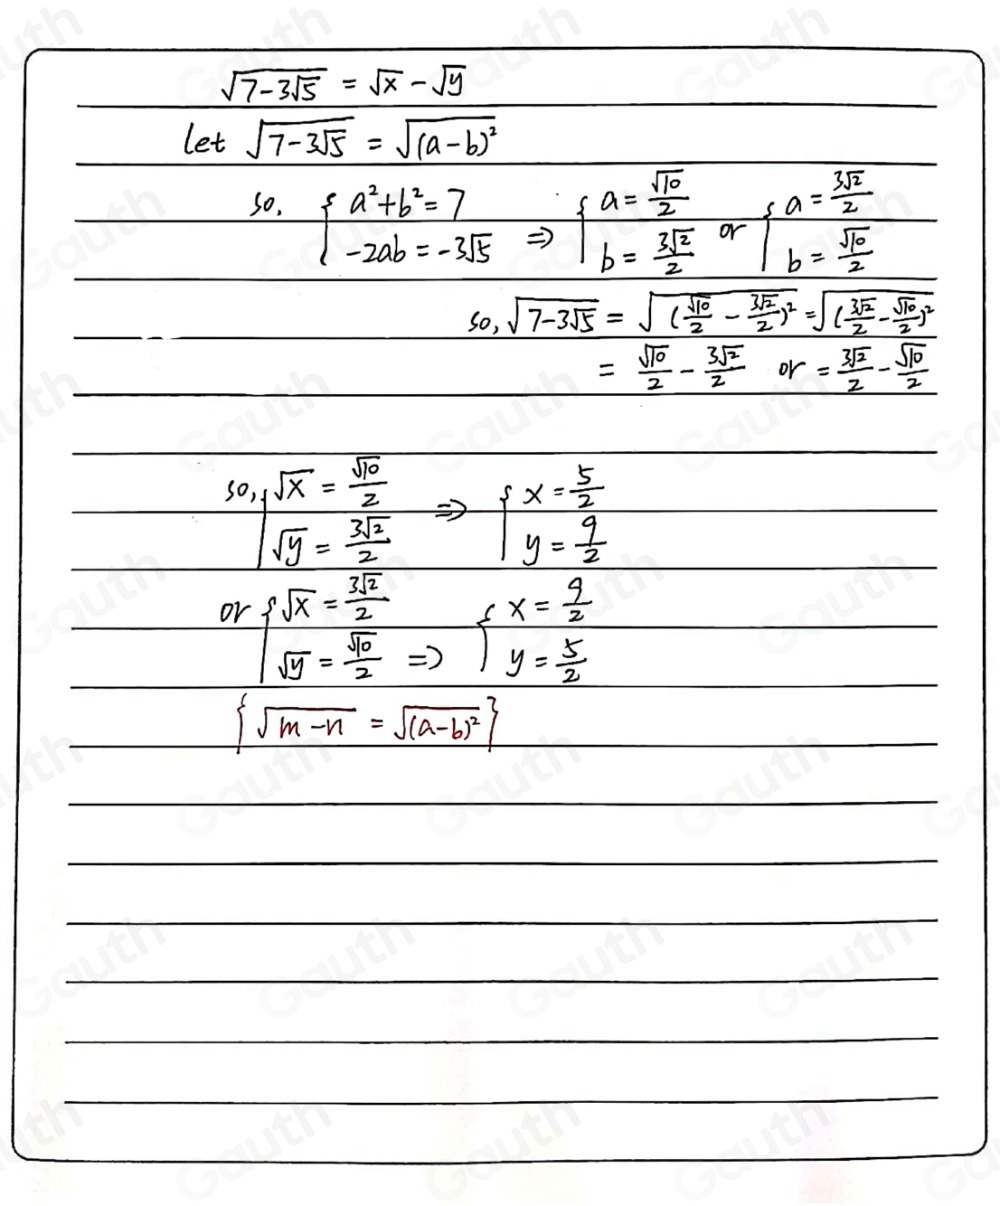 √(7-3√5) = √x - √y
let √(7-3√5) = √((a-b)²)
so, { a²+b²=7 ; -2ab=-3√5 ⇒ { a=√10/2 ; b=3√2/2 or { a=3√2/2 ; b=√10/2
so, √(7-3√5) = √((√10/2 - 3√2/2)²) = √((3√2/2 - √10/2)²)
= √10/2 - 3√2/2 or = 3√2/2 - √10/2
so, { √x = √10/2 ; √y = 3√2/2 ⇒ { x = 5/2 ; y = 9/2
or { √x = 3√2/2 ; √y = √10/2 ⇒ { x = 9/2 ; y = 5/2
{ √(m-n) = √((a-b)²) }
Gauth